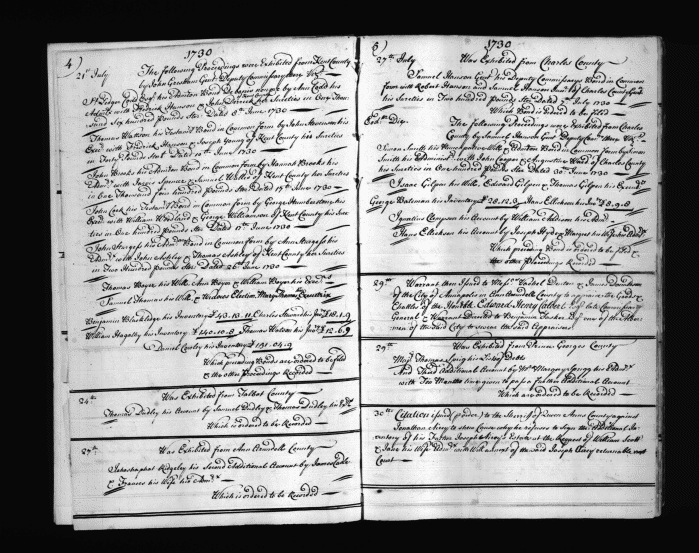 4)
1730
21st July
The following Proceedings were Exhibited from Kent County
by John Gresham Gent Deputy Commissary
St Ledger Codd Esqr his Admtion Bond by Ann Codd his
with Fredrick Hanson & his Sureties in One Thou
sand Six hundred Pounds Ster Dated 8th June 1730
Thomas Wattson his Testamt Bond in Common form by John
Exec with Fredrick Hanson & Joseph Young of Kent County his Sureties
in Forty Pounds Ster Dated 10th June 1730
John Brooks his Admtion Bond in Common form by Hannah Brooks his
Admx with James & Samuel Wills of Kent County her Sureties
in One Thousand four hundred Pounds Ster Dated 15th June 1730
John Cork his Testamt Bond in Common form by George
Exec with William Woodland & George Williamson of Kent County his Sure
ties in One hundred Pounds Ster Dated 17th June 1730
John Sturges his Admn Bond in Common form by Ann Sturges his
Admx with John Ashley & Thomas Ashley of Kent County her Sureties
in Two Hundred Pounds Ster Dated 26 June 1730
Thomas Boyer his Will Ann Boyer & William Boyer his Execs
Samuel Thomas his Will & Widows Election Mary Thomas Executrix
Benjamin Blackledge his Inventory £43.10.11 Charles his Invy £18.1.9
William Hagalty his Inventory £140.10.8 Thomas Watson his Invy £12.6.9
Daniel his Inventory £191.04.9
Which preceding Bonds are ordered to be filed
& the other Proceedings Recorded
24th
Was Exhibited from Talbot County
Thomas Dudley his Account by Samuel Dudley & Thomas Dudley his Exrs
Which is ordered to be Recorded
27th
Was Exhibited from Ann Arundell County
Ridgeley his Second Additional Account by James
& Frances his Wife his Admx
Which is ordered to be Recorded
5)
1730
27th July
Was Exhibited from Charles County
Samuel Hanson Gent his Deputy Commissarys Bond in Common
form with Robert Hanson and Samuel Hanson Junr of Charles County Gent
his Sureties in Two hundred Pounds Ster Dated July 1730
Which Bond is ordered to be filed
Eodm Die
The following were Exhibited from Charles
County by Samuel Hanson Gent Deputy Comry
Susan Smith his Admtion Bond in Common form by Simon
Smith his Administr with John Cooper & Augustine Ward of Charles County
his Sureties in One hundred Pounds Ster Dated 30th June 1730
Isaac Gilpin his Will, Edward Gilpin & Thomas Gilpin his Execrs
George Bateman his Inventory £28.12.3 Hans Ellickson his Invy £8.9.8
Ignatius his Account by William his Admr
Hans Ellickson his Account by Joseph & Margret his Wife his Admx
Which preceding Bond is ordered to be filed &
the other Proceedings Recorded
29th
Warrant then Issued to Messrs Vachel Denton & James Donaldson
of the City of Annapolis in Ann Arundell County to appraise the Goods &
Chattles of the Honble Edward Henry Calvert Esqr late Commissary
General & Warrant Directed to Benjamin Tasker Esqr one of the Alder
men of the said City to swear the said Appraisers
29th
Was Exhibited from Prince Georges County
Majr Thomas Sprigg his List of Debts
And Third Additional Account by Mrs Margery Sprigg his Admx
with Two Months time given to pass a further Additional Account
Which are ordered to be Recorded
30th
Citation issued to the Sheriff of Queen Anns County against
Jonathan Airey to shew Cause why he refuses to sign the Additional In
ventory of his Father Joseph Aireys Estate at the Request of William Scott
& Jane his Wife Admx with Will annext of the said Joseph Airey returnable next
Court